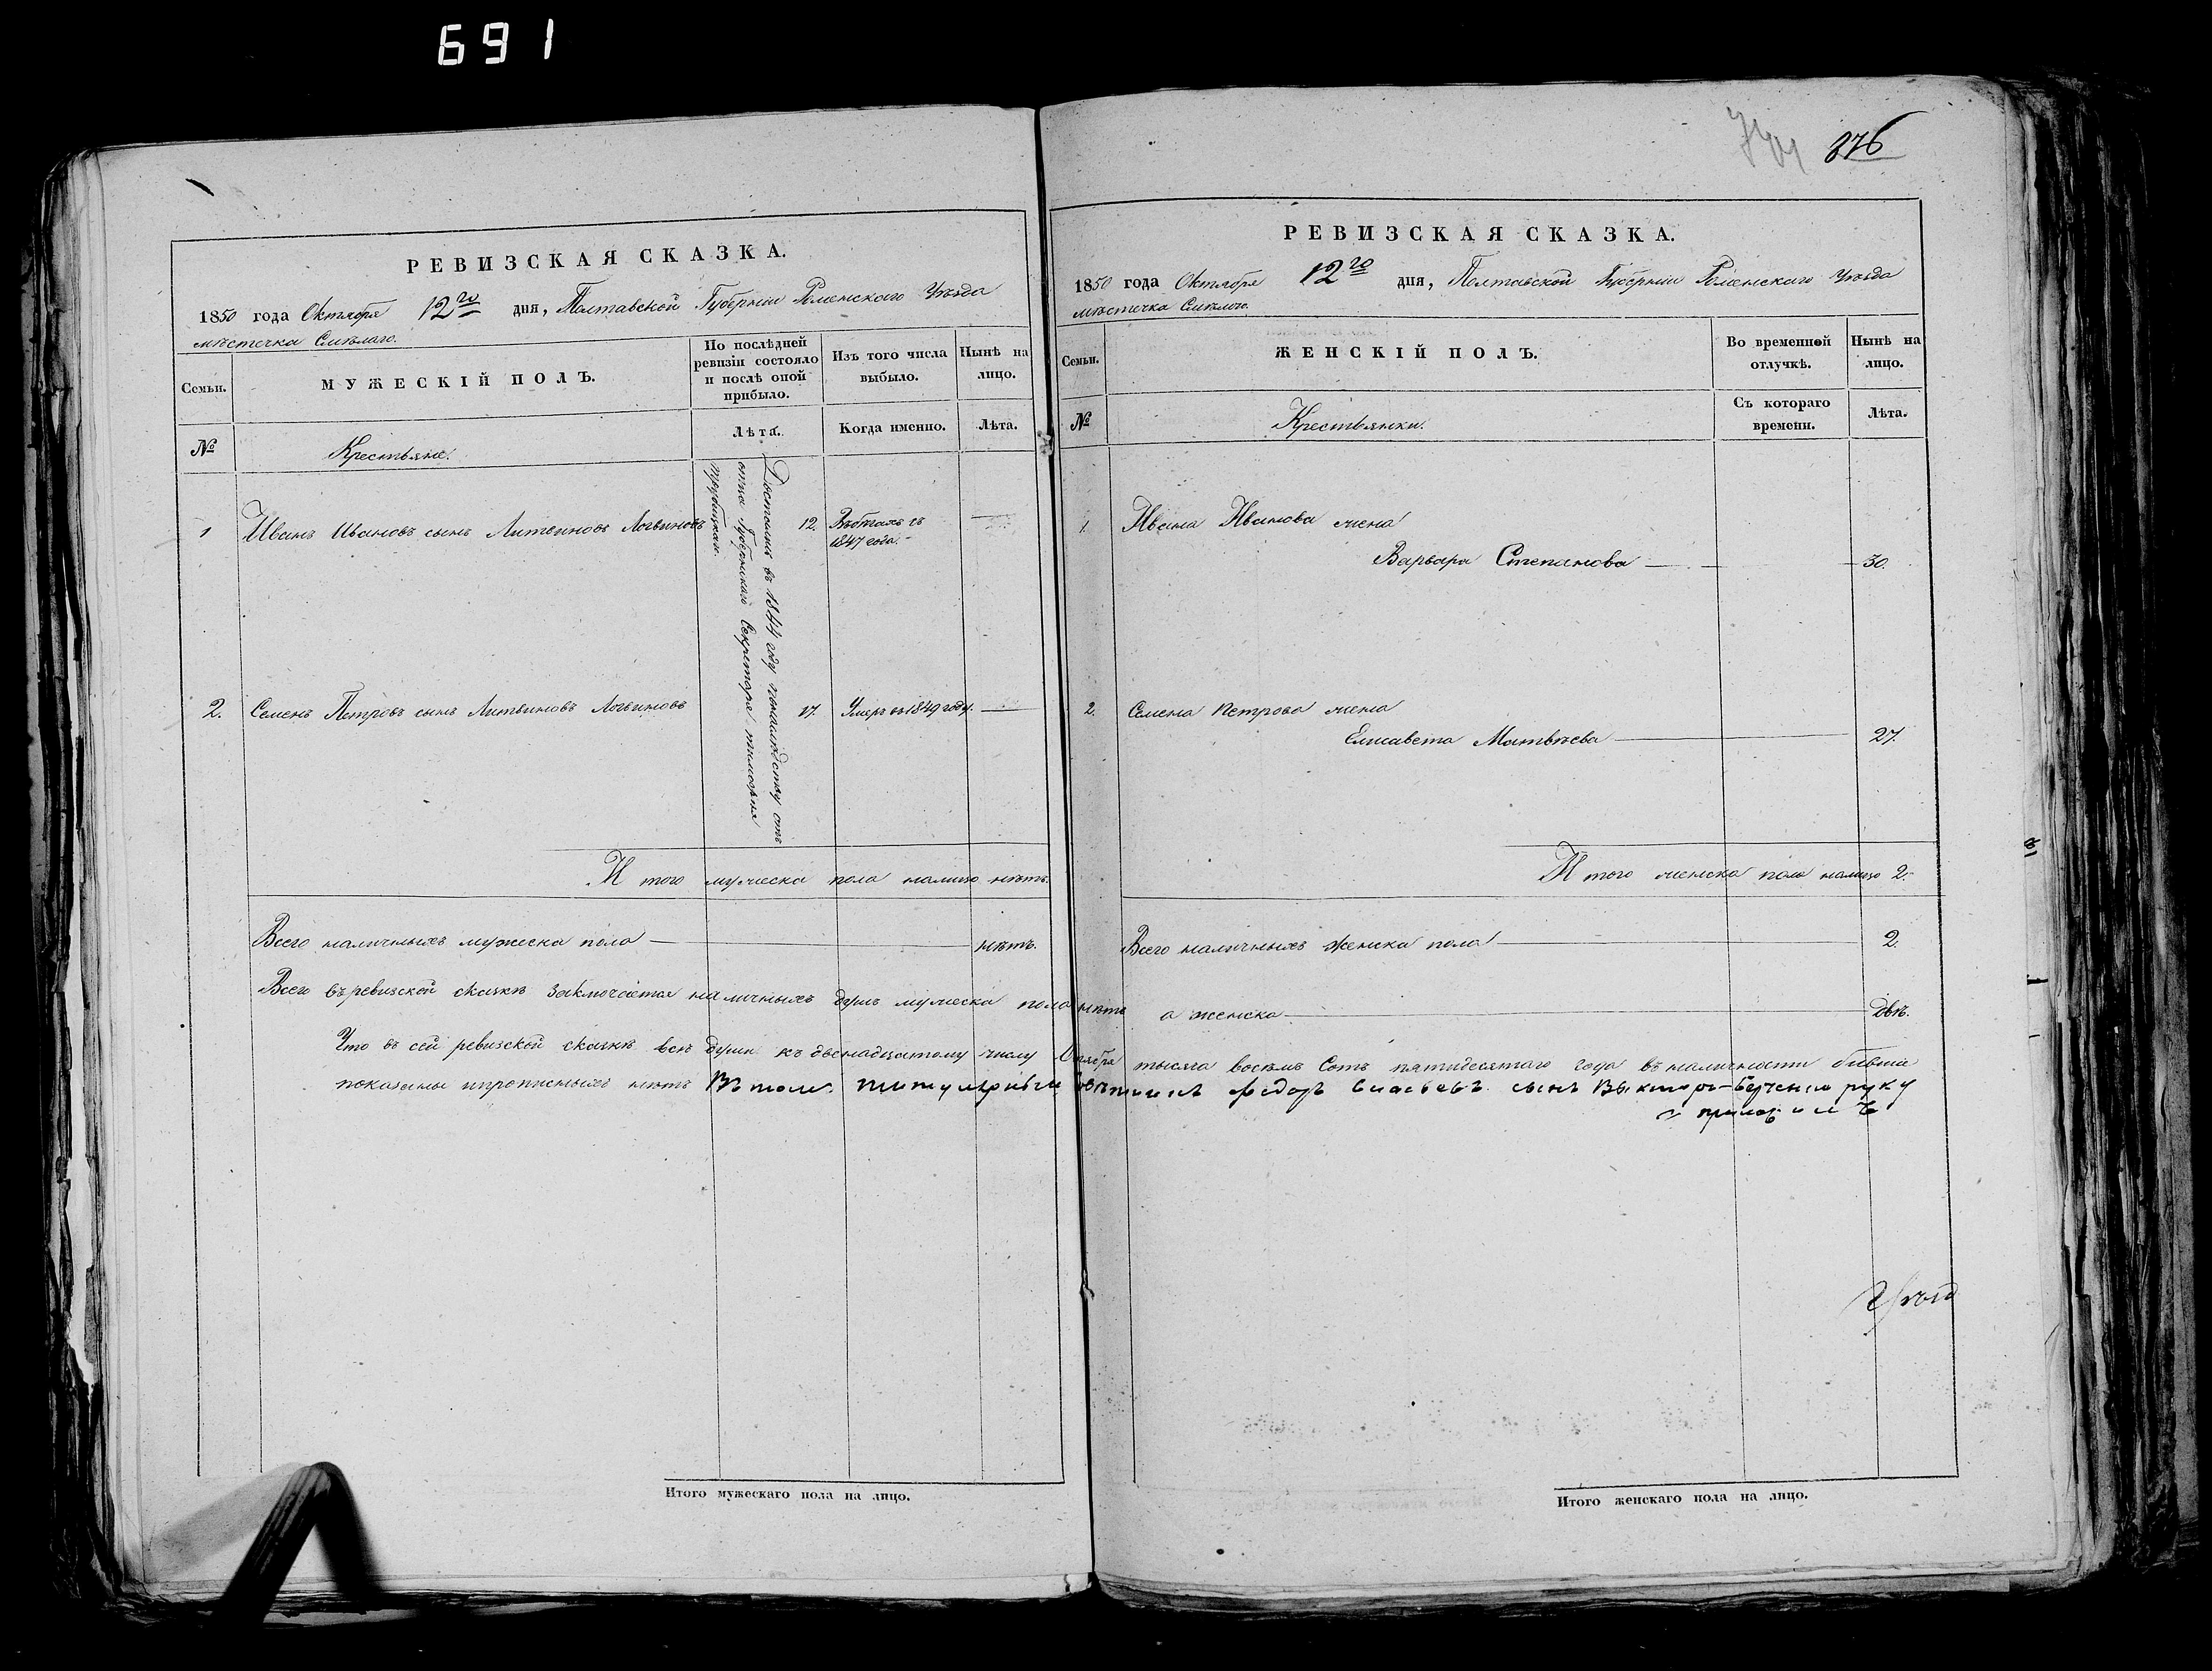 691
376
РЕВИЗСКАЯ СКАЗКА.
1850 года Октября 12го дня, Полтавской Губерніи Роменскаго Уѣзда
мѣстечка Смѣлаго.
Семьи.
МУЖЕСКІЙ ПОЛЪ.
По послѣдней ревизіи состояло и послѣ оной прибыло.
Изъ того числа выбыло.
Нынѣ на лицо.
№
Крестьяне.
Лѣта.
Когда именно.
Лѣта.
Достались въ 1844 году по наслѣдству отъ
отца Губернскаго Секретаря
1 Иванъ Ивановъ сынъ Литвиновъ Логвиновъ 12. Въ бѣгахъ съ
1847 года.
2. Семенъ Петровъ сынъ Литвиновъ Логвиновъ 17. Умеръ въ 1849 году.
Итого мужеска пола налицо нѣтъ.
Всего наличныхъ мужеска пола нѣтъ.
Всего въ ревизской сказкѣ заключается наличныхъ душъ мужеска пола нѣтъ
Что въ сей ревизской сказкѣ всѣ души къ двенадцатому числу Октября
показаны и прописныхъ нѣтъ Въ томъ титулярный
Итого мужескаго пола на лицо.
РЕВИЗСКАЯ СКАЗКА.
1850 года Октября 12го дня, Полтавской Губерніи Роменскаго Уѣзда
мѣстечка Смѣлого.
Семьи.
ЖЕНСКІЙ ПОЛЪ.
Во временной отлучкѣ.
Нынѣ на лицо.
№
Крестьянки.
Съ котораго времени.
Лѣта.
1. Ивана Иванова жена
Варвара Степанова 30.
2. Семена Петрова жена
Елисавета Матвѣева 27.
Итого женска пола налицо 2.
Всего наличныхъ женска пола 2.
а женска двѣ.
тысяча восемь сотъ пятидесятаго года въ наличности бывшіе
совѣтникъ Федоръ сынъ руку
приложилъ
Итого женскаго пола на лицо.